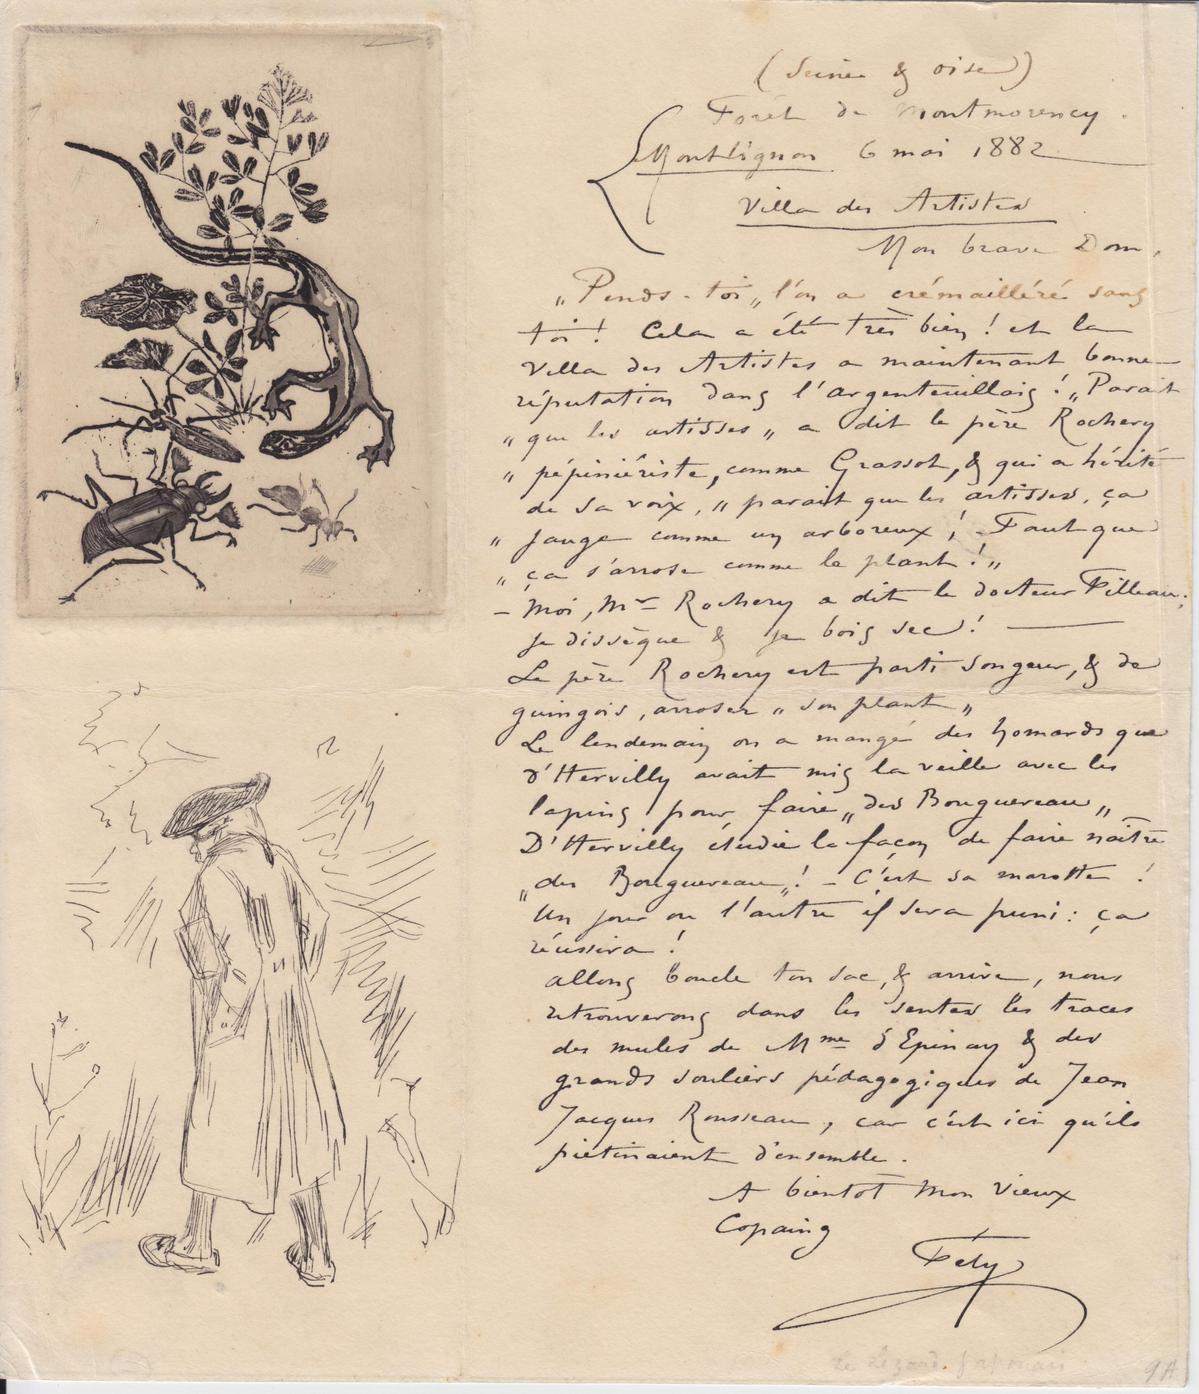 (Seine & oise)
Forêt de Montmorency.
Montlignon 6 mai 1882
Villa des Artistes
Mon brave Dom,
„Pends-toi„ l'on a crémailléré sans
toi! Cela a été très bien! et la
Villa des Artistes a maintenant bonne
réputation dans l'argenteuillois! „Parait
„ que les artisses „ a dit le père Rochery
„ pépiniériste, comme Grassot, & qui a hérité
de sa voix, „ parait que les artisses, ça
„ pouge comme un arboreux! Faut que
„ ça s'arrose comme le plant!„
- Moi, Mr Rochery a dit le docteur Filleau,
je dissèque & je bois sec!
Le père Rochery est parti songeur, & de
guingois, arroser „ son plant „
Le lendemain on a mangé des homards que
d'Hervilly avait mis la veille avec les
lapins pour faire „des Bouguereau„
D'Hervilly étudie la façon de faire naître
„des Bouguereau„! - C'est sa marotte!
Un jour ou l'autre il sera puni: ça
réussira!
allons boucle ton sac, & arrive, nous
retrouverons dans les sentes les traces
des mules de Mme d'Epinay & des
grands souliers pédagogiques de Jean
Jacques Rousseau, car c'est ici qu'ils
piétinaient d'ensemble.
A bientot Mon Vieux
Copaing
Fély
Le Lézard Japonais
9A